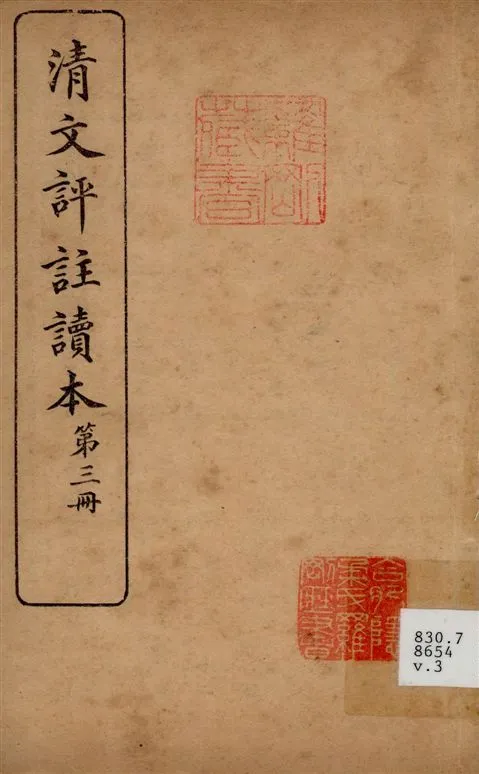 清文評註讀本第三冊
藏書
830.7
8654
v.3